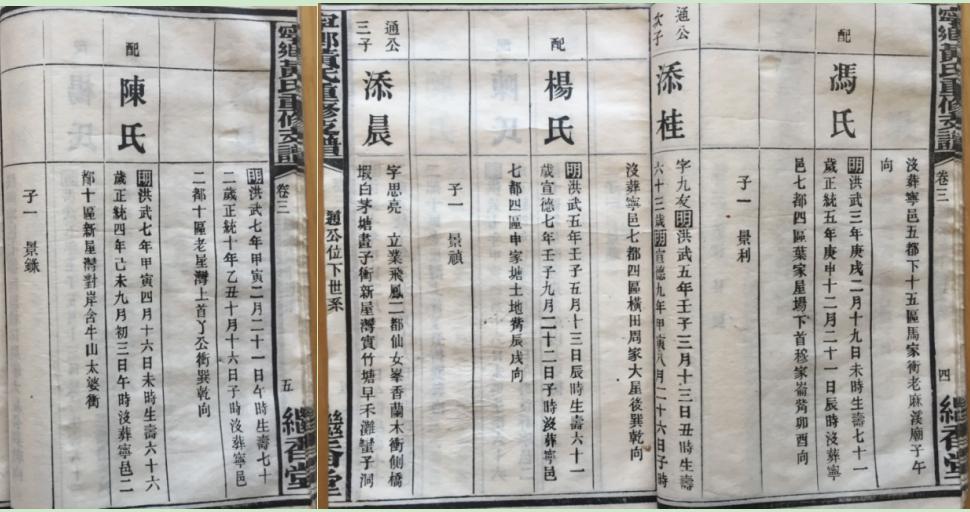 寧鄉黃氏重修支譜
卷三
四
繼香堂
沒葬寧邑五都下十五區馬家衝老麻溪廟子午
向
配
馮氏
明洪武三年庚戌二月十九日未時生壽七十一
歲正統五年庚申十二月二十一日辰時沒葬寧
邑七都四區葉家屋場下首穆家崙胷卯酉向
子一 景利
通公
次子
添桂
字九友明洪武五年壬子三月十三日丑時生壽
六十三歲明宣德九年甲寅八月二十六日子時
沒葬寧邑七都四區橫田周家大屋後巽乾向
配
楊氏
明洪武五年壬子五月十三日辰時生壽六十一
歲宣德七年壬子九月二十二日子時沒葬寧邑
七都四區申家塘土地胷辰戌向
子一 景禎
通公
三子
添晨
字思亮 立業飛鳳二都仙女峯香蘭木衝側橋
塅白茅塘晝子衝新屋灣實竹塘早禾灘蠻子洞
寧鄉黃氏重修支譜
通公位下世系
繼香堂
寧鄉黃氏重修支譜
卷三
五
繼香堂
明洪武七年甲寅二月二十一日午時生壽七十
二歲正統十年乙丑十月十六日子時沒葬寧邑
二都十區老屋灣上首丫公衝巽乾向
配
陳氏
明洪武七年甲寅四月十六日未時生壽六十六
歲正統四年己未九月初三日午時沒葬寧邑二
都十區新屋灣對岸含牛山太婆衝
子一 景銖